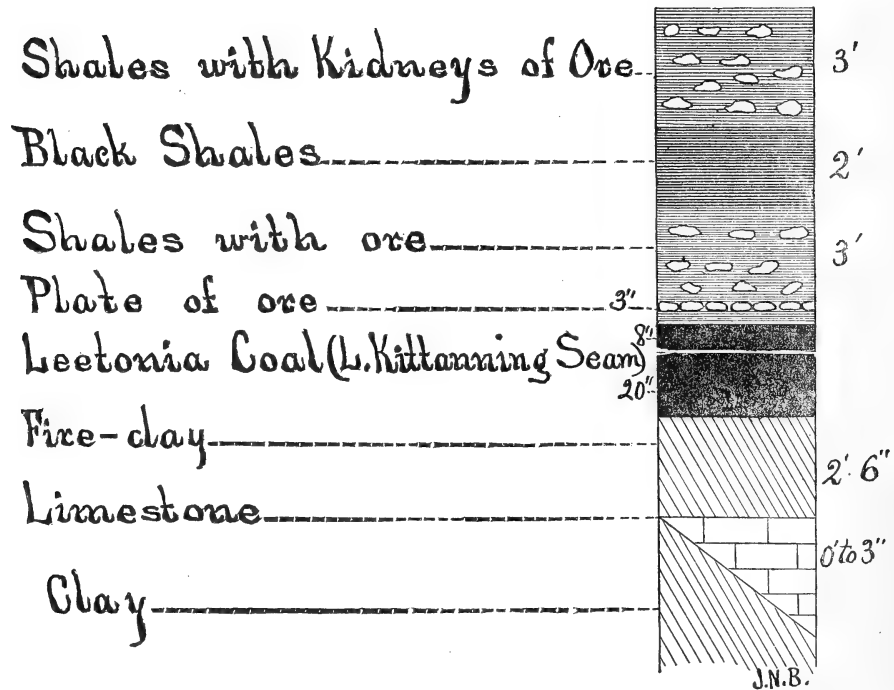 Shales with Kidneys of Ore 3'
Black Shales 2'
Shales with ore 3'
Plate of ore 3"
Leetonia Coal (L. Kittanning Seam) 8"
20"
Fire-clay 2'. 6"
Limestone 0' to 3"
Clay
J.N.B.